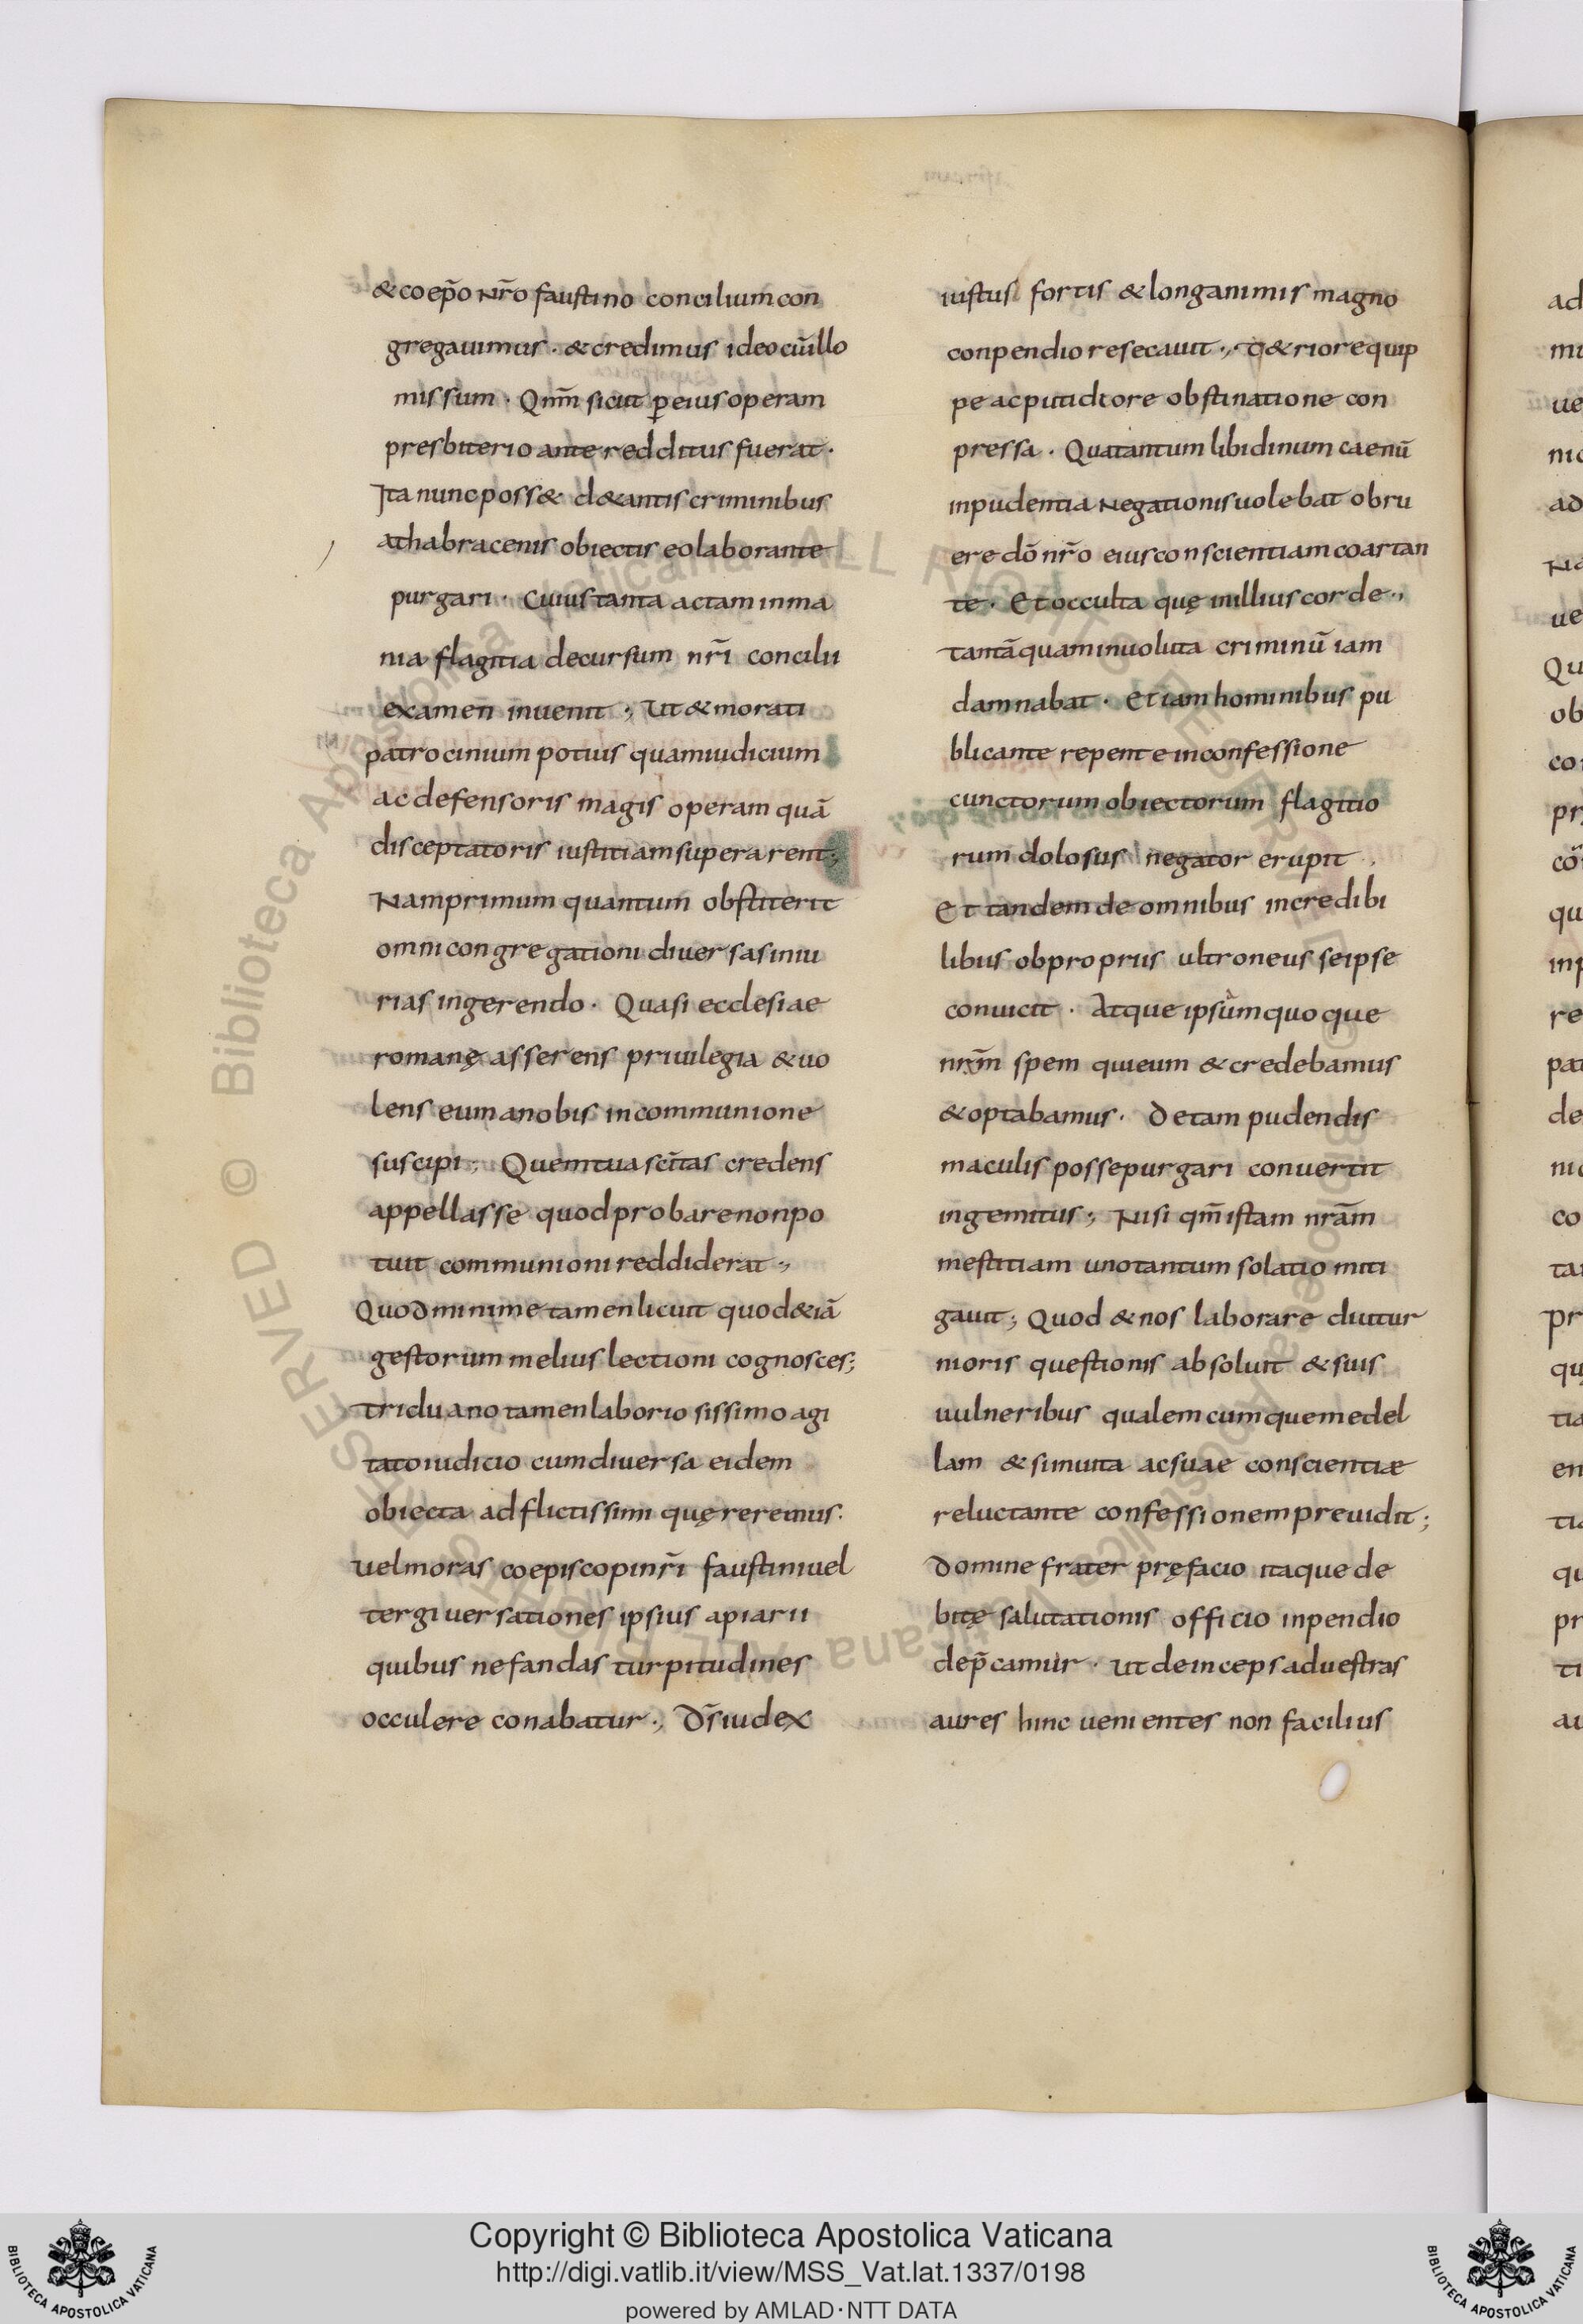 & coep̃o nr̃o faustino concilium con
gregauimus · & credimus ideo cũ illo
missum · Qnm̃ sicut p̱ eius operam
presbiterio ante redditus fuerat ·
Ita nunc poss& d&antis criminibus
athabracenis obiectis eo laborante
purgari · Cuius tanta ac tam inma
nia flagitia decursum nr̃i concilii
examen inuenit ·, Ut & morati
patrocinium potius quam iudicium
ac defensoris magis operam quã
disceptatoris iustitiam superarent ;
Nam primum quantum obstiterit
omni congregationi diuersas iniu
rias ingerendo · Quasi ecclesiae
romanę asserens priuilegia & uo
lens eum a nobis in communione
suscipi ; Quem tua sc̃itas credens
appellasse quod probare non po
tuit communioni reddiderat ·,
Quod minime tamen licuit quod &iã
gestorum melius lectioni cognosces ;
triduano tamen laboriosissimo agi
tato iudicio cum diuersa eidem
obiecta adflictissimi quęreremus ·
uel moras coepiscopi nr̃i faustini uel
tergiuersationes ipsius apiarii
quibus nefandas turpitudines
occulere conabatur ·, D̃s iudex
iustus fortis & longanimis magno
conpendio resecauit ·, t&riore quip
pe ac putidiore obstinatione con
pressa · Qua tantum libidinum caenũ
inpudentia negationis uolebat obru
ere dõ nr̃o eius conscientiam coartan
te · Et occulta quę in illius corde ·,
tantã quam inuoluta criminũ iam
damnabat · Etiam hominibus pu
blicante repente in confessione
cunctorum obiectorum flagitio
rum dolosus negator erupit ·
Et tandem de omnibus incredibi
libus obpropriis ultroneus se ipse
conuicit · Atque ipsum quoque
nrãm spem qui eum & credebamus
& optabamus · De tam pudendis
maculis posse purgari conuertit
in gemitus ; Nisi qm̃ istam nrãm
mestitiam uno tantum solatio miti
gauit ; Quod & nos laborare diutur
nioris questionis absoluit & suis
uulneribus qualemcumque medel
lam & si inuita ac suae conscientiæ
reluctante confessionem preuidit ;
Domine frater pręfacio itaque de
bitę salutationis officio inpendio
dep̃camur · Ut deinceps ad uestras
aures hinc uenientes non facilius
Copyright © Biblioteca Apostolica Vaticana
http://digi.vatlib.it/view/MSS_Vat.lat.1337/0198
powered by AMLAD·NTT DATA